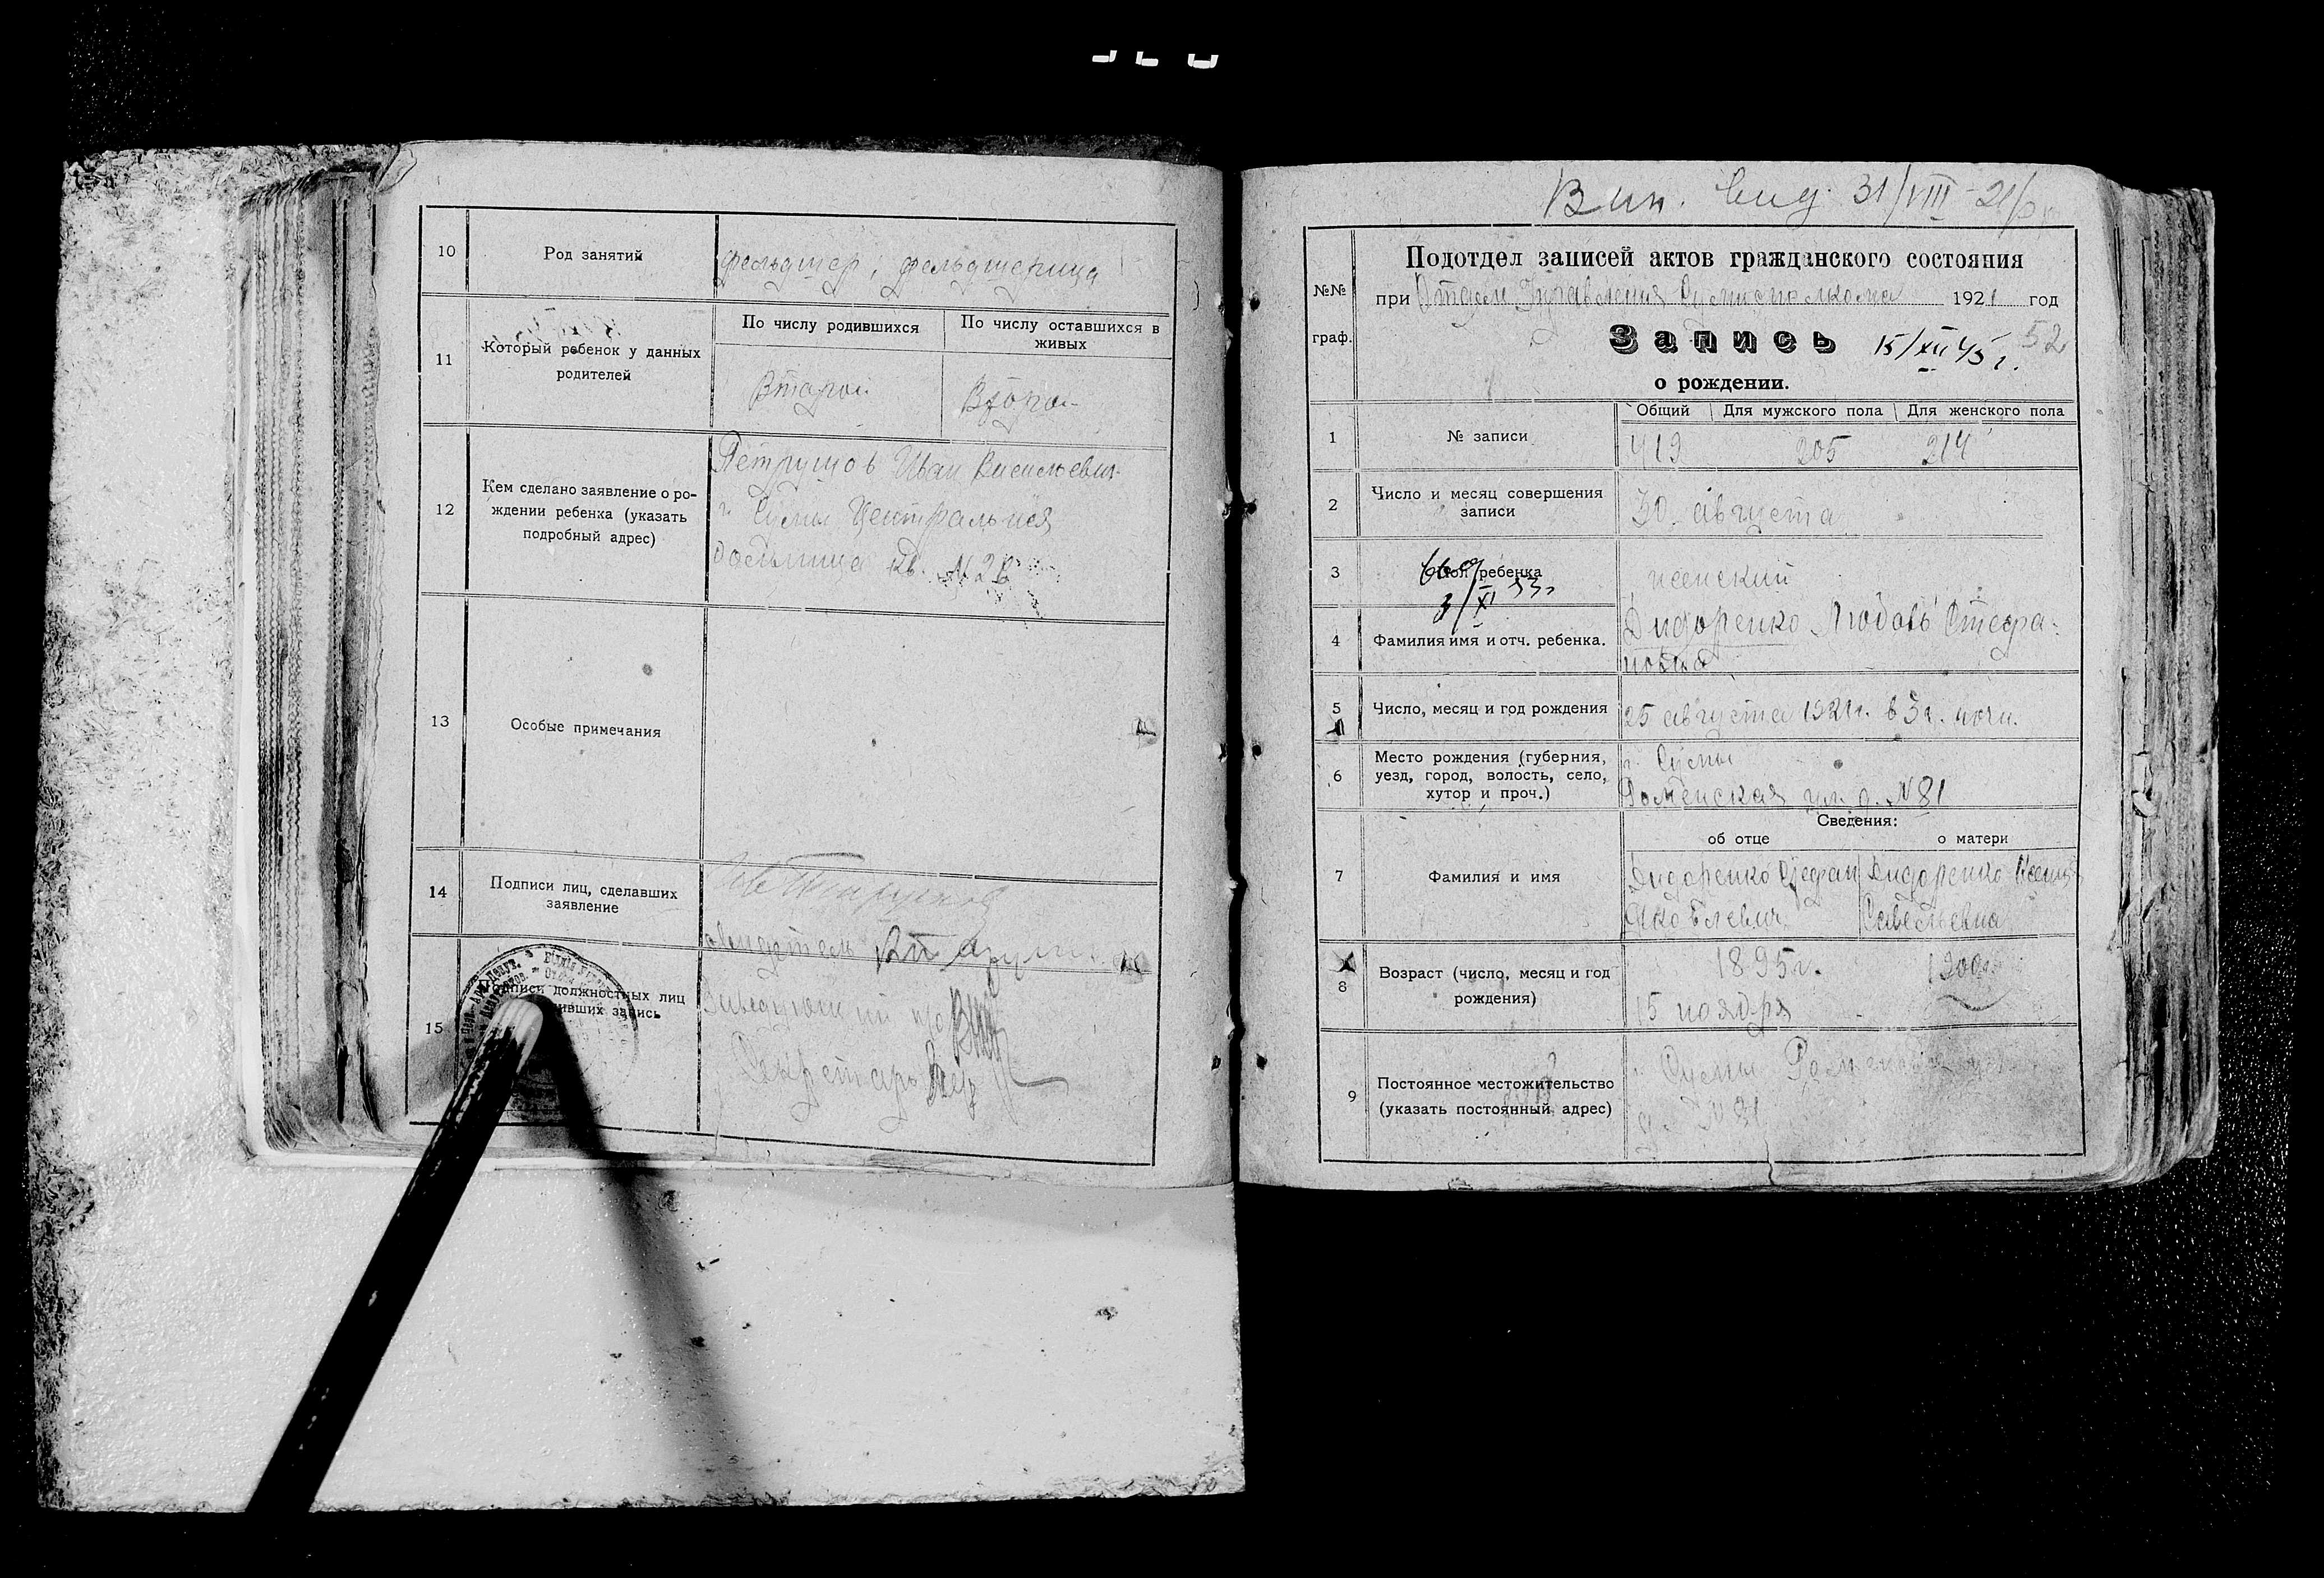 10
Род занятий
фельдшер; фельдшерица
11
Который ребенок у данных
родителей
По числу родившихся
По числу оставшихся в
живых
Второй
Второй
12
Кем сделано заявление о ро-
ждении ребенка (указать
подробный адрес)
Петрушов Иван Васильевич
г. Сумы Центральная
больница кв. №
13
Особые примечания
14
Подписи лиц, сделавших
заявление
свидетель
15
Подписи должностных лиц
запись
Заведующий
Секретарь
31/VIII-21
№№
граф.
Подотдел записей актов гражданского состояния
при Отделе Управления Сумисполкома 1921 год
Запись 15/XII 45 г. 52
о рождении.
1
№ записи
Общий
Для мужского пола
Для женского пола
419 205 214
2
Число и месяц совершения
записи
30 августа
3
Пол ребенка
3/XI 33г
женский
4
Фамилия имя и отч. ребенка.
Дидоренко Любовь Стефа-
новна
5
Число, месяц и год рождения
25 августа 1921г. в 3ч. ночи.
6
Место рождения (губерния,
уезд, город, волость, село,
хутор и проч.)
г. Сумы
Роменская ул. д. №81
Сведения:
об отце
о матери
7
Фамилия и имя
Дидоренко Стефан
Яковлевич
Дидоренко Ксения
Савельевна
8
Возраст (число, месяц и год
рождения)
1895г.
15 ноября
1900г.
9
Постоянное местожительство
(указать постоянный адрес)
г. Сумы Роменская ул.
д. №81